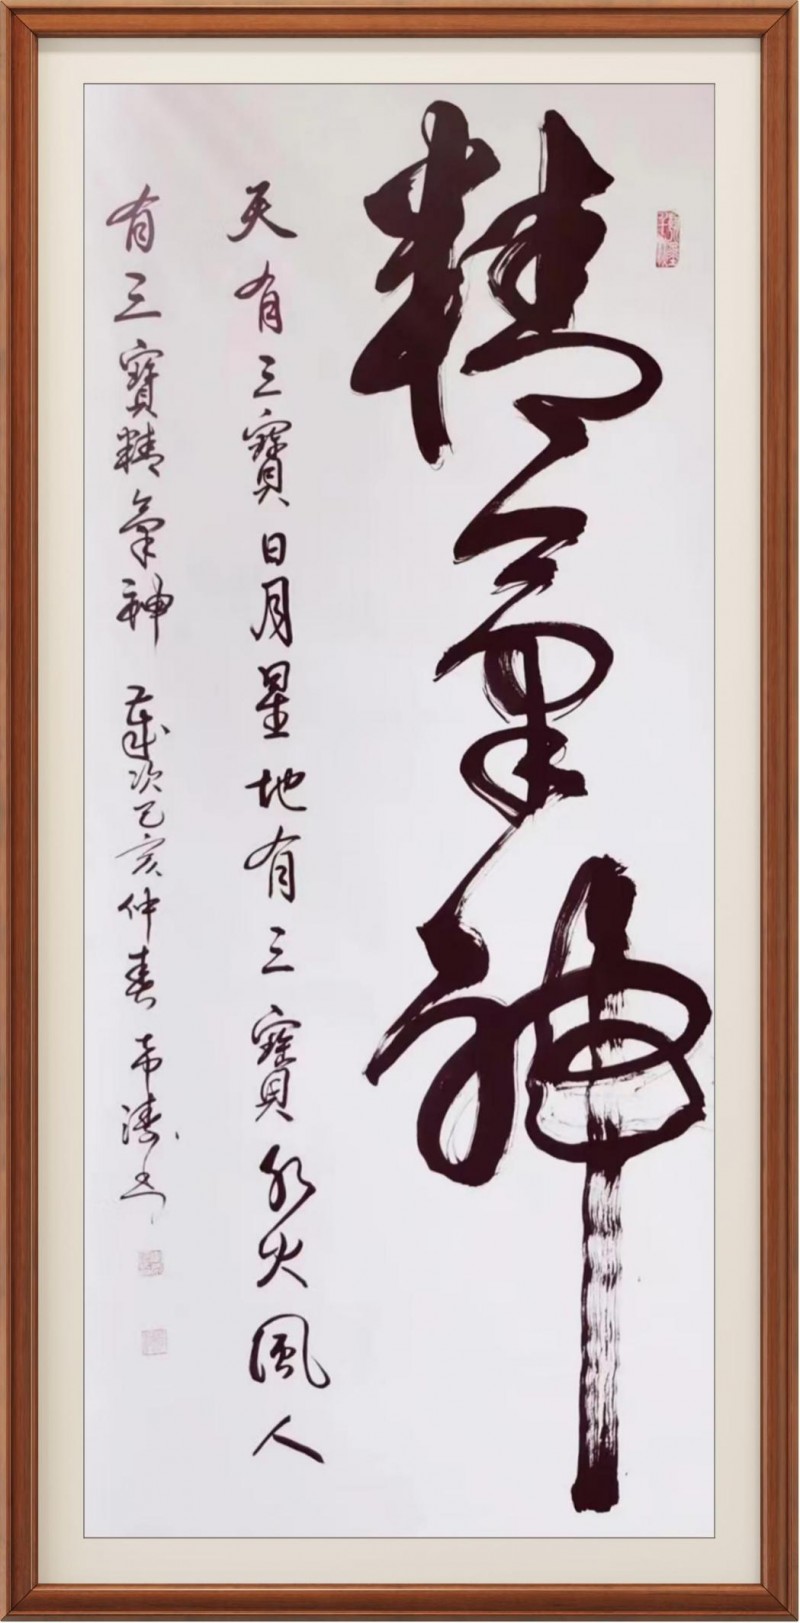 精氣神
天有三寶日月星地有三寶水火風人
有三寶精氣神 歲次己亥仲春 書